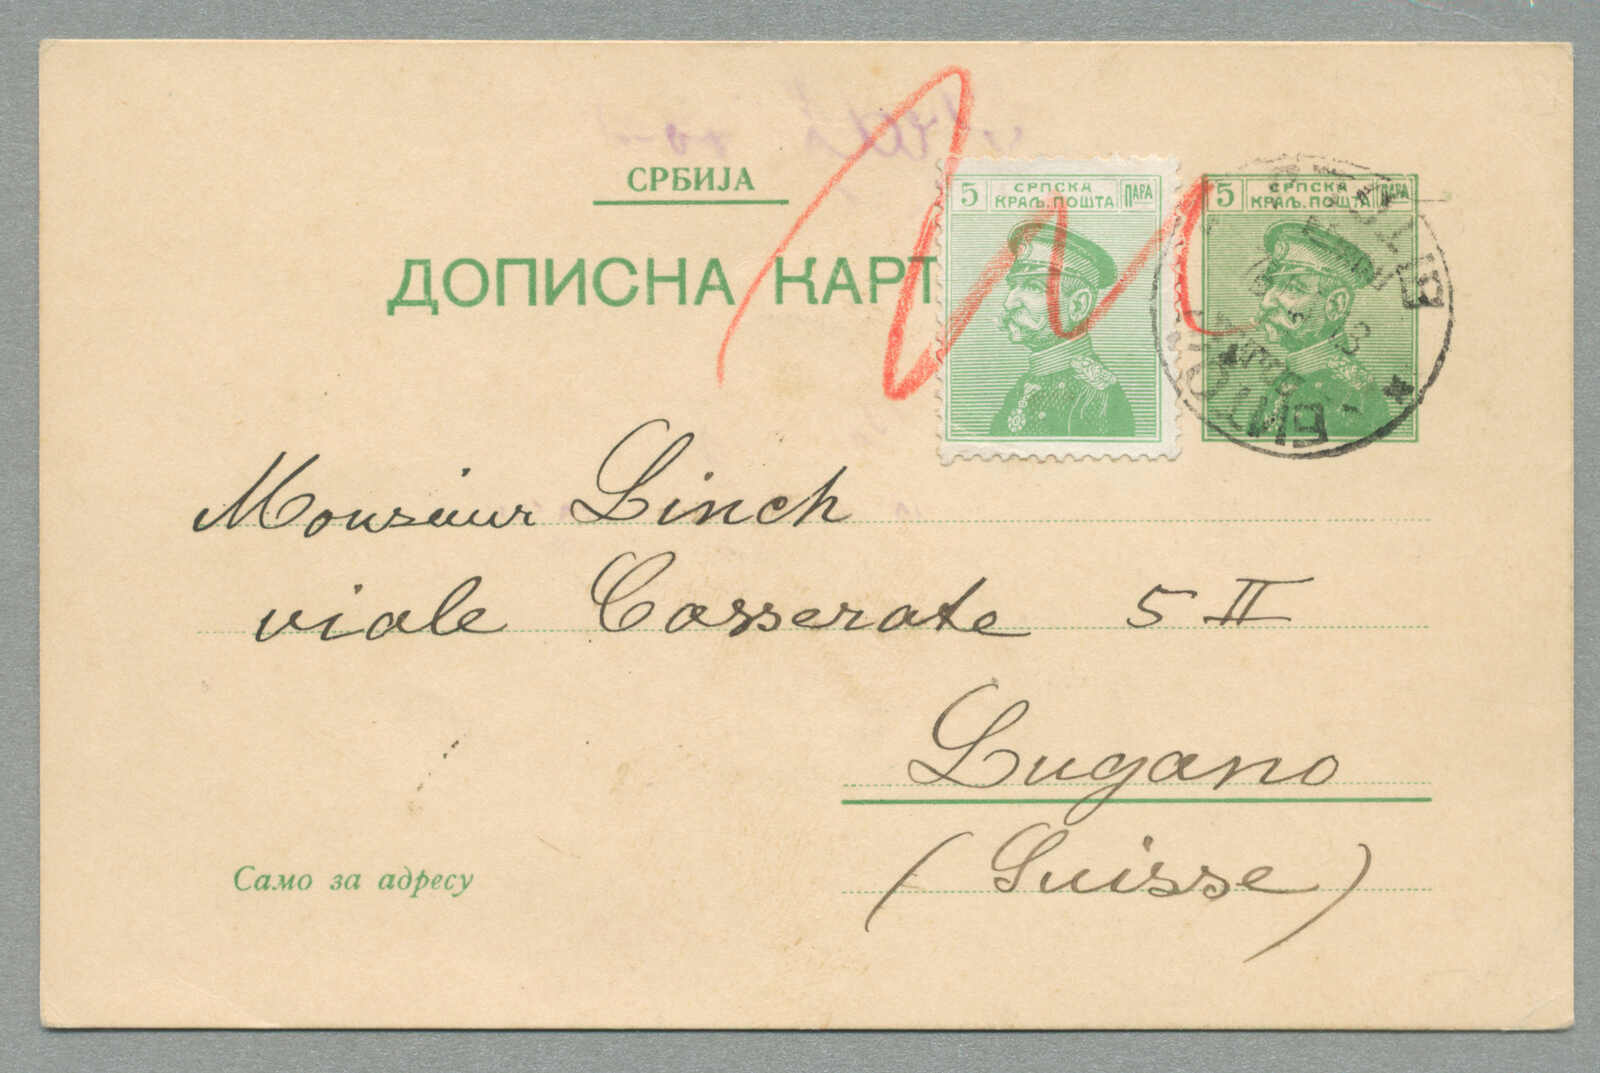 СРБИЈА
ДОПИСНА КАРТ
5 СРПСКА КРАЉ. ПОШТА ПАРА
5 СРПСКА КРАЉ. ПОШТА ПАРА
БИТОЉ
Monsieur Linch
viale Casserate 5 II
Lugano
(Suisse)
Само за адресу